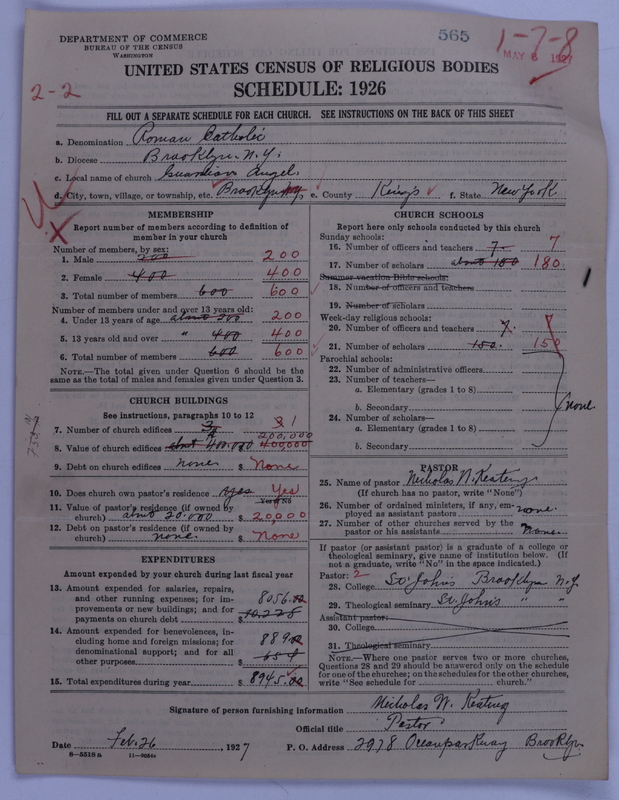 DEPARTMENT OF COMMERCE
BUREAU OF THE CENSUS
WASHINGTON
565
1-7-8
MAY 6 1927
UNITED STATES CENSUS OF RELIGIOUS BODIES
2-2
SCHEDULE: 1926
FILL OUT A SEPARATE SCHEDULE FOR EACH CHURCH. SEE INSTRUCTIONS ON THE BACK OF THIS SHEET
a. Denomination Roman Catholic
b. Diocese Brooklyn. N.Y.
c. Local name of church Guardian Angel
d. City, town, village, or township, etc. Brooklyn NY e. County Kings f. State New York
MEMBERSHIP
Report number of members according to definition of member in your church
Number of members, by sex:
1. Male 200 200
2. Female 400 400
3. Total number of members 600 600
Number of members under and over 13 years old:
4. Under 13 years of age about 200 200
5. 13 years old and over " 400 400
6. Total number of members 600 600
NOTE.—The total given under Question 6 should be same as the total of males and females given under Question 3.
CHURCH BUILDINGS
See instructions, paragraphs 10 to 12
7. Number of church edifices 1
8. Value of church edifices about 400.000 400,000 200,000
9. Debt on church edifices none $ None
10. Does church own pastor's residence yes Yes
Yes or No
11. Value of pastor's residence (if owned by church) about 20.000 $ 20,000
12. Debt on pastor's residence (if owned by church) none. $ None
EXPENDITURES
Amount expended by your church during last fiscal year
13. Amount expended for salaries, repairs, and other running expenses; for improvements or new buildings; and for payments on church debt $ 8056.00
14. Amount expended for benevolences, including home and foreign missions; for denominational support; and for all other purposes $ 889.00
15. Total expenditures during year $ 8945.00
CHURCH SCHOOLS
Report here only schools conducted by this church
Sunday schools:
16. Number of officers and teachers 7. 7
17. Number of scholars about 180 180
Summer vacation Bible schools:
18. Number of officers and teachers
19. Number of scholars
Week-day religious schools:
20. Number of officers and teachers 7. 7
21. Number of scholars 150. 150
Parochial schools:
22. Number of administrative officers
23. Number of teachers—
a. Elementary (grades 1 to 8)
b. Secondary none
24. Number of scholars—
a. Elementary (grades 1 to 8)
b. Secondary
PASTOR
25. Name of pastor Nicholas W. Keating
(If church has no pastor, write "None")
26. Number of ordained ministers, if any, employed as assistant pastors none.
27. Number of other churches served by the pastor or his assistants None.
If pastor (or assistant pastor) is a graduate of a college or theological seminary, give name of institution below. (If not a graduate, write "No" in the space indicated.)
Pastor: 2
28. College St John's Brooklyn N.Y.
29. Theological seminary St. John's " "
Assistant pastor:
30. College
31. Theological seminary
NOTE.—Where one pastor serves two or more churches, Questions 28 and 29 should be answered only on the schedule for one of the churches; on the schedules for the other churches, write "See schedule for ........ church."
Signature of person furnishing information Nicholas W. Keating
Official title Pastor
Date Feb. 26, 1927 P. O. Address 2978 Ocean parkway Brooklyn
8-5518a 11-9084